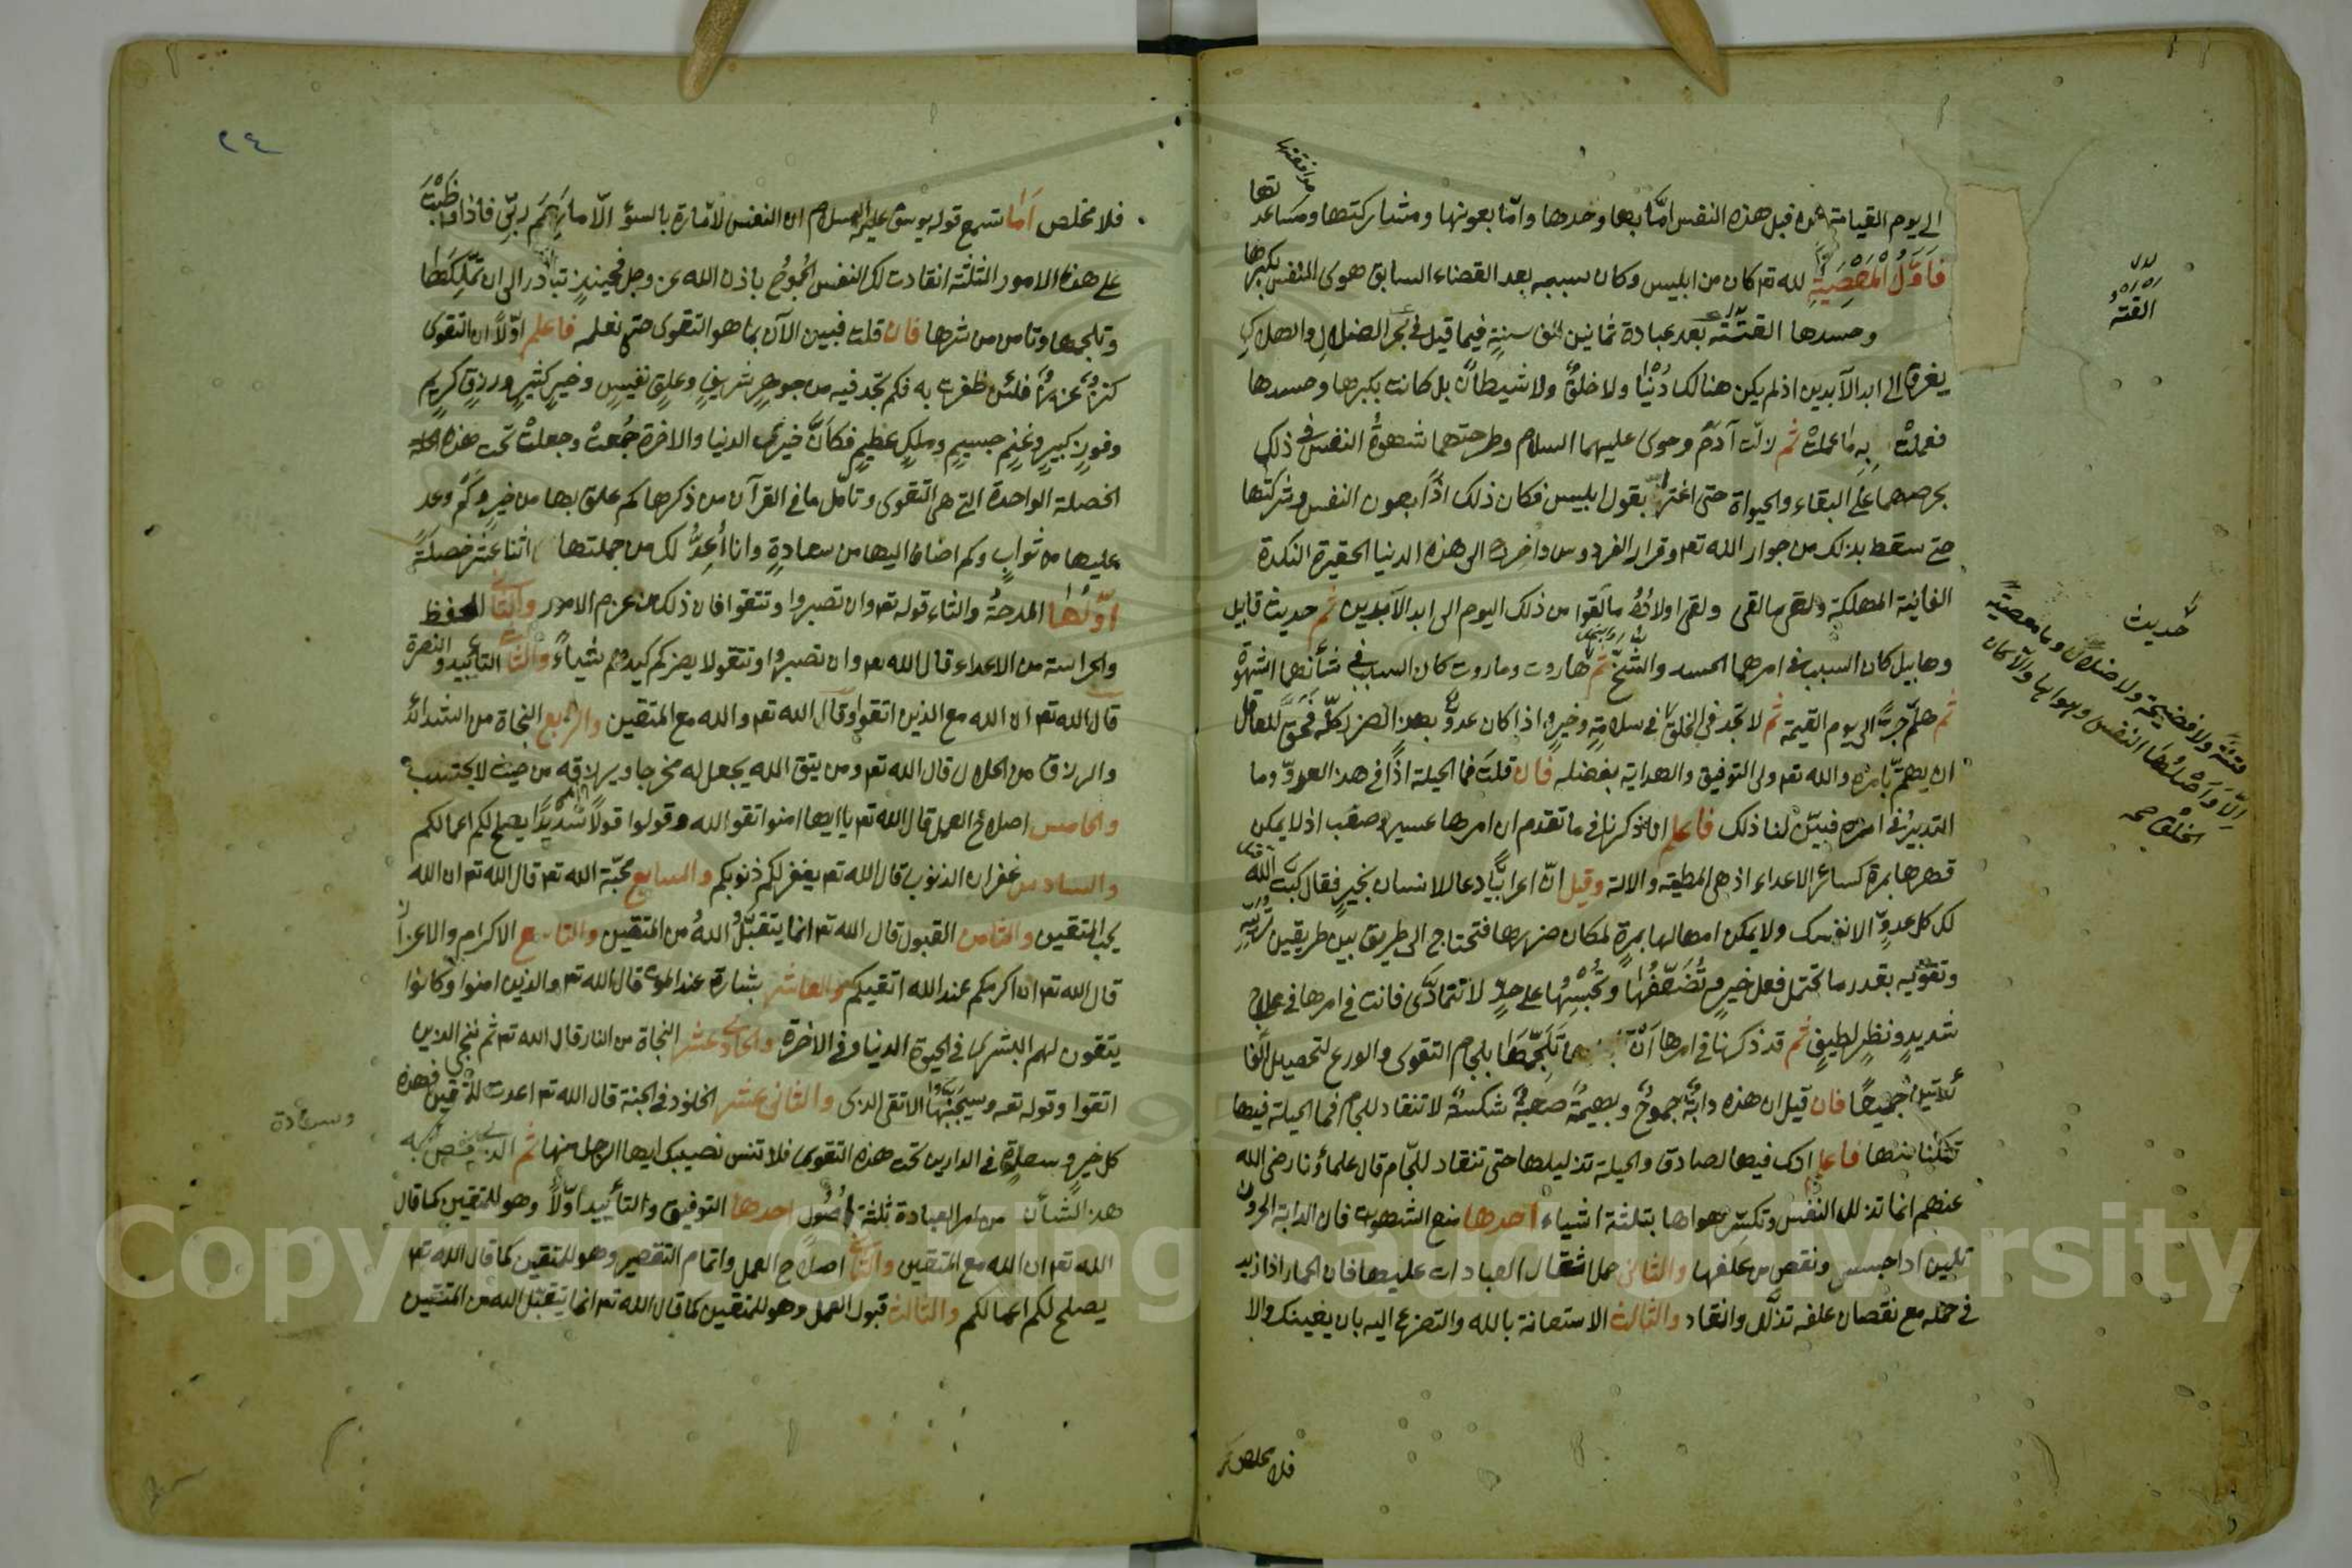 الى يوم القيامة من قبل هذه النفس امّا بها وحدها وامّا بعونها ومشاركتها ومساعدتها
موافقتها
فَاَوَّلُ الْمَعْصِيَةِ لله تع كان من ابليس وكان سببه بعد القضاء السابق هوى النفس بكبرها
وحسدها القته بعد عبادة ثمانين الف سنةٍ فيما قيل فى بحر الضلال والهلاك
يغرق الى ابد الآبدين اذ لم يكن هنالك دُنْيا ولا خلقٌ ولا شيطانٌ بل كانت بكبرها وحسدها
فعملتْ بِهِ ما عملتْ ثم زلّت آدم وحوى عليهما السلام وطرحتهما شهوةُ النفس فى ذلك
بحرصهما على البقاء والحيواة حتى اغترا بقول ابليس فكان ذلك اذًا بعون النفس وشركتها
حتى سقط بذلك من جوار الله تع وقرار الفردوس واخرج الى هذه الدنيا الحقيرة النكدة
الفانية المهلكة ولقى ما لقى ولقى اولادُهُ ما لَقوا من ذلك اليوم الى ابد الآبدين ثم حديث قابيل
وهابيل كان السبب فى امرهما الحسد والشحّ ثم هاروت وماروت كان السبب فى شأنهما الشهوة
ثم هلّم جرّا الى يوم القيمة ثم لا تجد فى الخلق فى سلامةٍ وخيرٍ اذا كان عدوٌّ بهذا الضرّ كلّه فحَقَّ للعاقل
ان يهتمّ بامره والله تع ولى التوفيق والهداية بفضله فان قلتَ فما الحيلة اذًا فى هذا العدوّ وما
التدبيرُ فى امره فبيّن لنا ذلك فاعلم انا ذكرنا فى ما تقدم ان امرها عسيرٌ وصعب اذ لا يمكن
قهرها بمرة كسائر الاعداء اذ هى المطية والالة وقيل انّ اعرابيًّا دعا لانسان بخيرٍ فقال كبت الله
لك كل عدوٍّ الا نفسك ولا يمكن اهمالها بمرةٍ لمكان ضررها فتحتاج الى طريق بين طريقين تُربّيه
وتقوّيه بقدر ما تحتمل فعل خيرٍ وتُضَعّفُها وتحبسُها على حدٍّ لا تتمادَى فانت فى امرها فى علاج
شديدٍ ونظرٍ لطيفٍ ثم قد ذكرنا فى امرها ان تلجّمها بلجام التقوى والورع لتحصيل الفا
ئدتين جميعًا فان قيل ان هذه دابّةٌ جموحٌ وبهيمةٌ صعبةٌ شكسةٌ لا تنقاد للجام فما الحيلة فيها
تمكننا منها فاعلم انك فيها لصادق والحيلة تذليلها حتى تنقاد للجّام قال علماؤنا رضى الله
عنهم انما تذلل النفس وتكسّر هواها بثلثة اشياء احدها منع الشهوت فان الدابة الحرون
تلين اذا حبست ونقص من علفها والثانى حمل اثقال العبادات عليها فان الحمار اذا زيد
فى حمله مع نقصان علفه تذلّل وانقاد والثالث الاستعانة بالله والتضرع اليه بان يعينك والا
فلا مخلص
القته
حديث
فتنةً ولا فضيحةً ولا ضلالٌ وما معصيةً
اِلّا وَاَصْلُهَا النفس وهواها والا كان
الخلق صح
٢٤
فلا مخلص اَمَا تسمع قوله يوسف عليه السلام ان النفس لامّارة بالسوء الّا ما رَحِمَ ربّى فاذا واظبْتَ
على هذه الامور الثلثة انقادت لك النفس الجَمُوحُ باذن الله عز وجل فحينئذٍ تبادر الى ان تملكها
وتلجمها وتامن من شرها فان قلت فبين الآن بما هو التقوى حتى نعلمه فاعلم اوّلًا ان التقوى
كنزٌ عزيزٌ فلئن ظفرت به فكم تجد فيه من جوهرٍ شريفٍ وعلقٍ نفيسٍ وخيرٍ كثيرٍ ورزقٍ كريمٍ
وفوزٍ كبيرٍ وغنمٍ جسيمٍ وملكٍ عظيمٍ فكانَّ خيرات الدنيا والاخرة جُمعتْ وجعلتْ تحت هذه
الخصلة الواحدة التى هى التقوى وتامّل ما فى القرآن من ذكرها كم علق بها من خيرٍ وكم وعد
عليها من ثوابٍ وكم اضاف اليها من سعادةٍ وانا اُعِدُّ لك من جملتها اثنا عشر خصلةً
اوّلُها المدحةُ والثناء قوله تع وان تصبروا وتتقوا فان ذلك من عزم الامور والثانى الحفظ
والحراسة من الاعداء قال الله تع وان تصبروا وتتقوا لا يضركم كيدهم شيئاً والثالث التأييد والنصرة
قال الله تع ان الله مع الذين اتقوا وقال الله تع والله مع المتقين والرابع النجاة من الشدائد
والرزق من الحلال قال الله تع ومن يتق الله يجعل له مخرجا ويرزقه من حيث لا يحتسب
والخامس اصلاح العمل قال الله تع يا ايها امنوا اتقوا الله وقولوا قولًا سديدًا يصلح لكم اعمالكم
والسادس غفران الذنوب قال الله تع يغفر لكم ذنوبكم والسابع محبّة الله تع قال الله تع ان الله
يحب المتقين والثامن القبول قال الله تع انما يتقبّل اللهُ من المتقين والتاسع الاكرام والاعزاز
قال الله تع ان اكرمكم عند الله اتقيكم والعاشر بشارة عند الموت قال الله تع والذين امنوا وكانوا
يتقون لهم البشرى فى الحيوة الدنيا وفى الاخرة والحادى عشر النجاة من النار قال الله تع ثم ننجى الذين
اتقوا وقوله تع وسيجنّبها الاتقى الذى والثانى عشر الخلود فى الجنة قال الله تع اعدت للمتقين فهذه
كل خير وسعادة فى الدارين تحت هذه التقوى فلا تنس نصيبك ايها الرجل منها ثم الذى يختص به
هذا الشأن من امر العبادة ثلثة اصُول احدها التوفيق والتأييد اوّلًا وهو للمتقين كما قال
الله تع ان الله مع المتقين والثانى اصلاح العمل واتمام التقصير وهو للمتقين كما قال الله تع
يصلح لكم اعمالكم والثالث قبول العمل وهو للمتقين كما قال الله تع انما يتقبّل الله من المتقين
وسعادة
Copyright © King Saud University